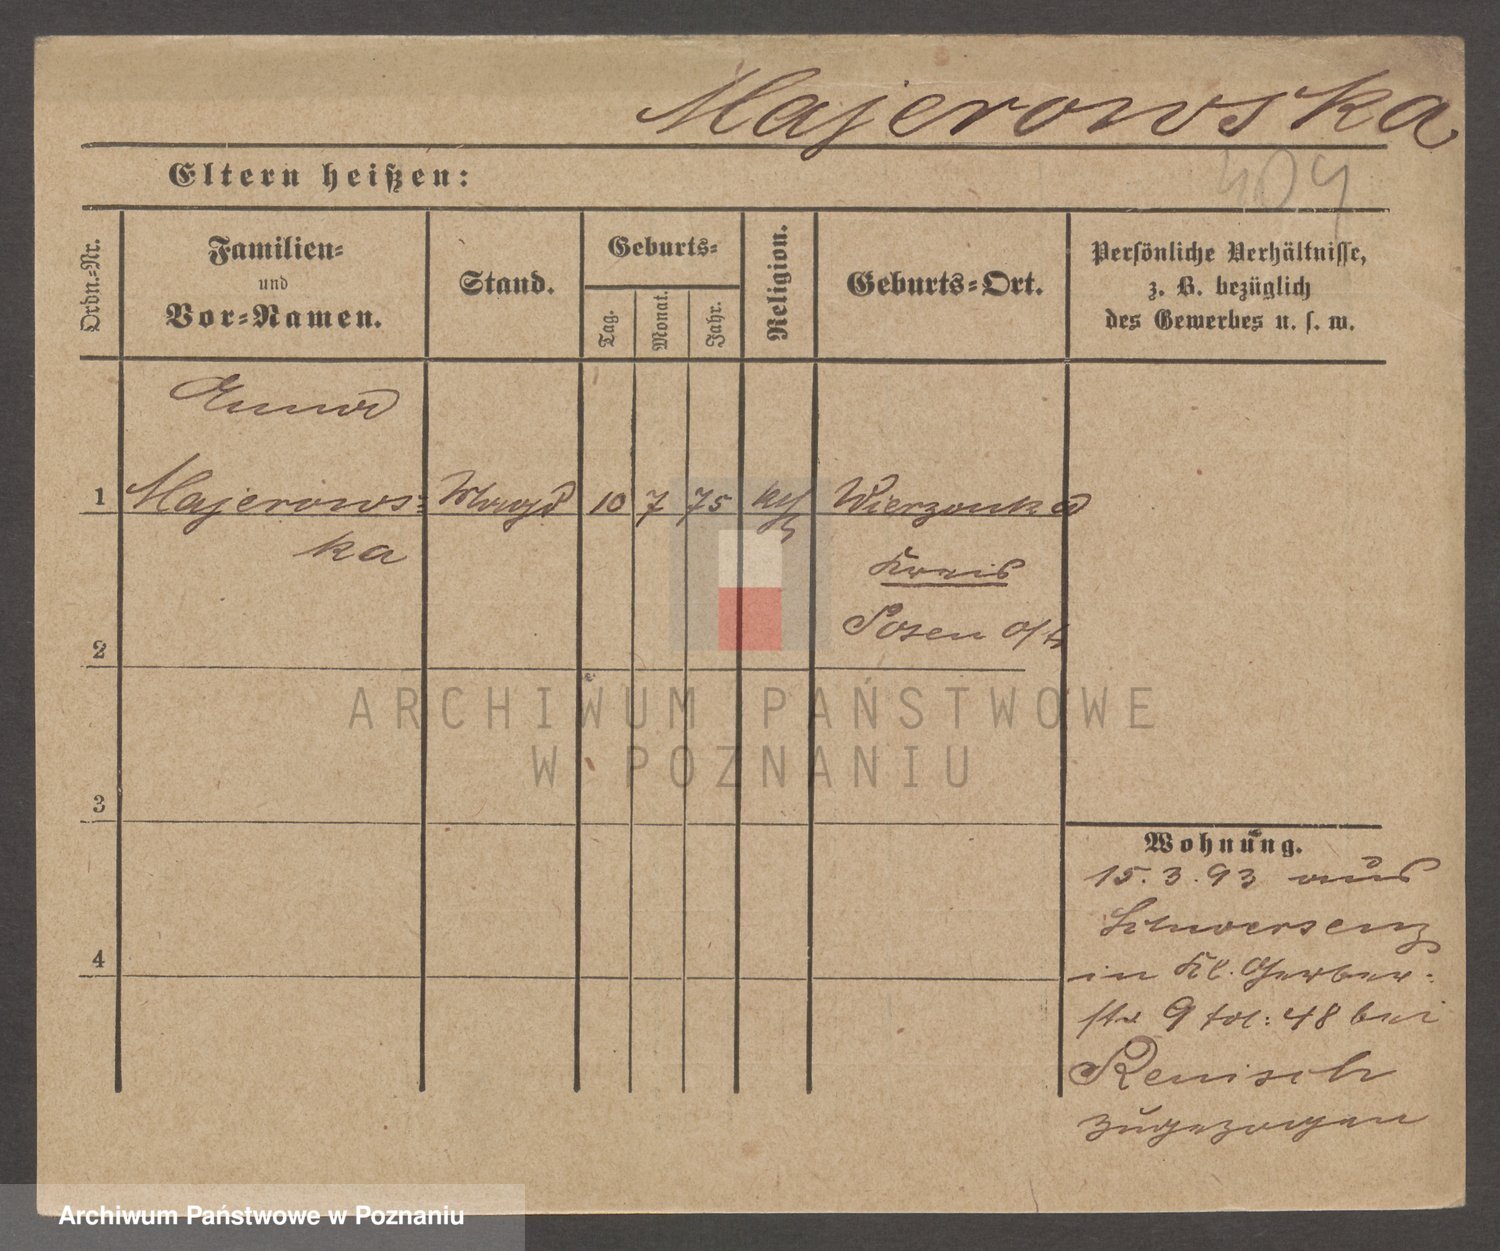 Majerowska
Eltern heißen:
409
Ordn.-Nr.
Familien-
und
Vor-Namen.
Stand.
Geburts-
Tag.
Monat.
Jahr.
Religion.
Geburts-Ort.
Persönliche Verhältnisse,
z. B. bezüglich
des Gewerbes u. s. w.
Emma
1 Majerows- Magd 10 7 75 kth Wierzonka
ka
Kreis
Posen O/
2
3
4
Wohnung.
15.3.93 aus
Schwersenz
in Kl. Gerber-
str 9 fol: 48 bei
Renisch
zugezogen
ARCHIWUM PAŃSTWOWE
W POZNANIU
Archiwum Państwowe w Poznaniu